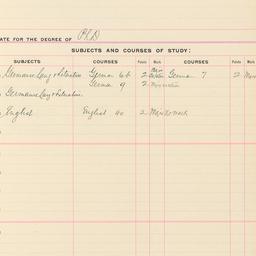 ATE FOR THE DEGREE OF PhD
SUBJECTS AND COURSES OF STUDY:
SUBJECTS COURSES Points Work COURSES Points Work
Germanic Lang & Literature German 6b 2 German 7 2
German 9 2
Germanic Lang & Literature
English English 40 2